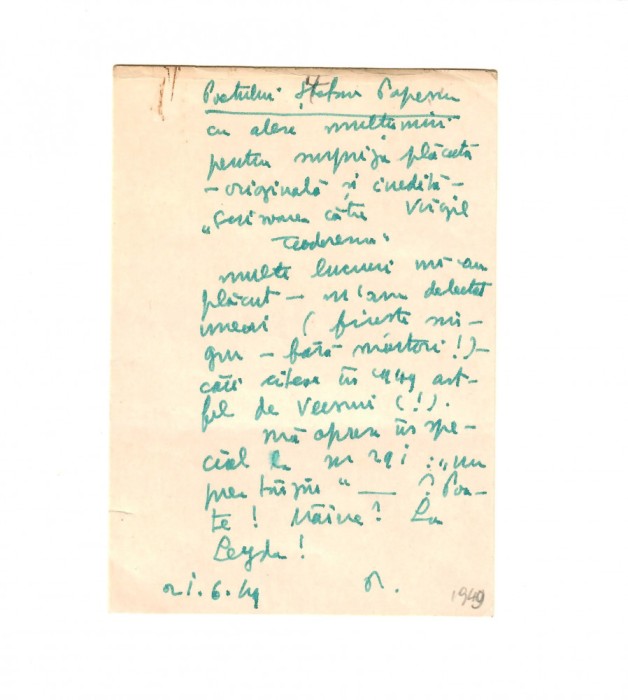 Poetului Ștefan Popescu
cu alese mulțumiri
pentru surpriza plăcută
– originală și inedită –
„Scrisoarea către Virgil
Teodorescu"
multe lucruri mi-au
plăcut – m'am delectat
uneori (firește sin-
gur – fără martori!) –
câți citesc în 1949 ast-
fel de versuri (!).
mă opresc în spe-
cial la :„nu
prea târziu" — ? Poa-
te! Mâine? La
Leyda!
21.6.49
1949